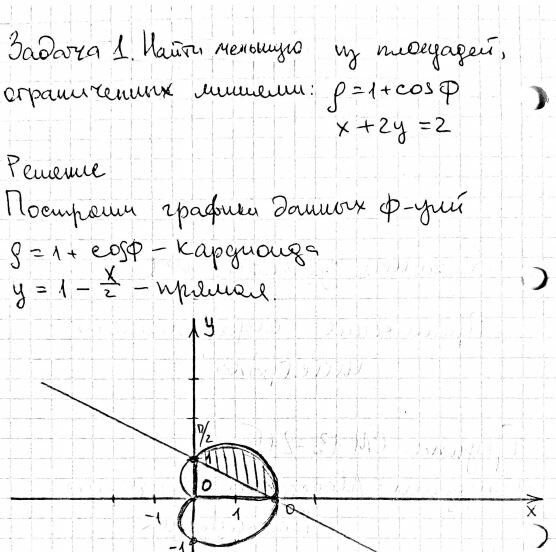 Задача 1. Найти меньшую из площадей,
ограниченных линиями: ρ=1+cosφ
x+2y=2
Решение
Построим графики данных ф-ций
ρ=1+cosφ – кардиоида
y=1-x/2 – прямая.
y
π/2
1
0
-1 1 0 x
-1